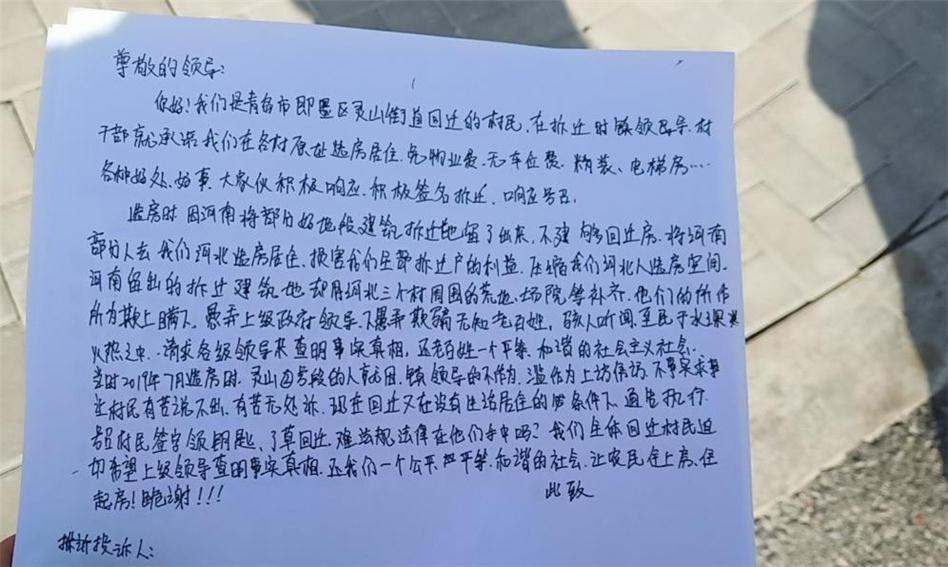 尊敬的领导:
你好!我们是青岛市即墨区灵山街道回迁的村民、在拆迁时镇领导、村
干部就承诺我们在各村原址选房居住、免物业费、无车位费、精装、电梯房……
各种好处、好事、大家伙积极响应、积极签名拆迁、响应号召.
选房时因河南将部分好地段建筑拆迁地留了出来、不建够回迁房、将河南
部分人去我们河北选房居住、损害我们全部拆迁户的利益、压缩我们河北人选房空间.
河南留出的拆迁建筑地却用河北三个村周围的荒地、场院等补齐、他们的所作
所为欺上瞒下、愚弄上级政府领导、愚弄欺骗无知老百姓,骇人听闻、至民于水深
火热之中、请求各级领导来查明事实真相,还老百姓一个平等、和谐的社会主义社会.
当时2019年7月选房时、灵山四号段的人员、镇领导的不作为、滥作为上访信访、不事实求事
让村民有苦说不出、有苦无处诉、现在回迁又在没有生活居住的条件下、通告执行
村民签字领钥匙、了草回迁、难法规法律在他们手中吗?我们全体回迁村民迫
切希望上级领导查明事实真相、还我们一个公平平等、和谐的社会、让农民住上房、住
起房!跪谢!!!
此致
投诉人: